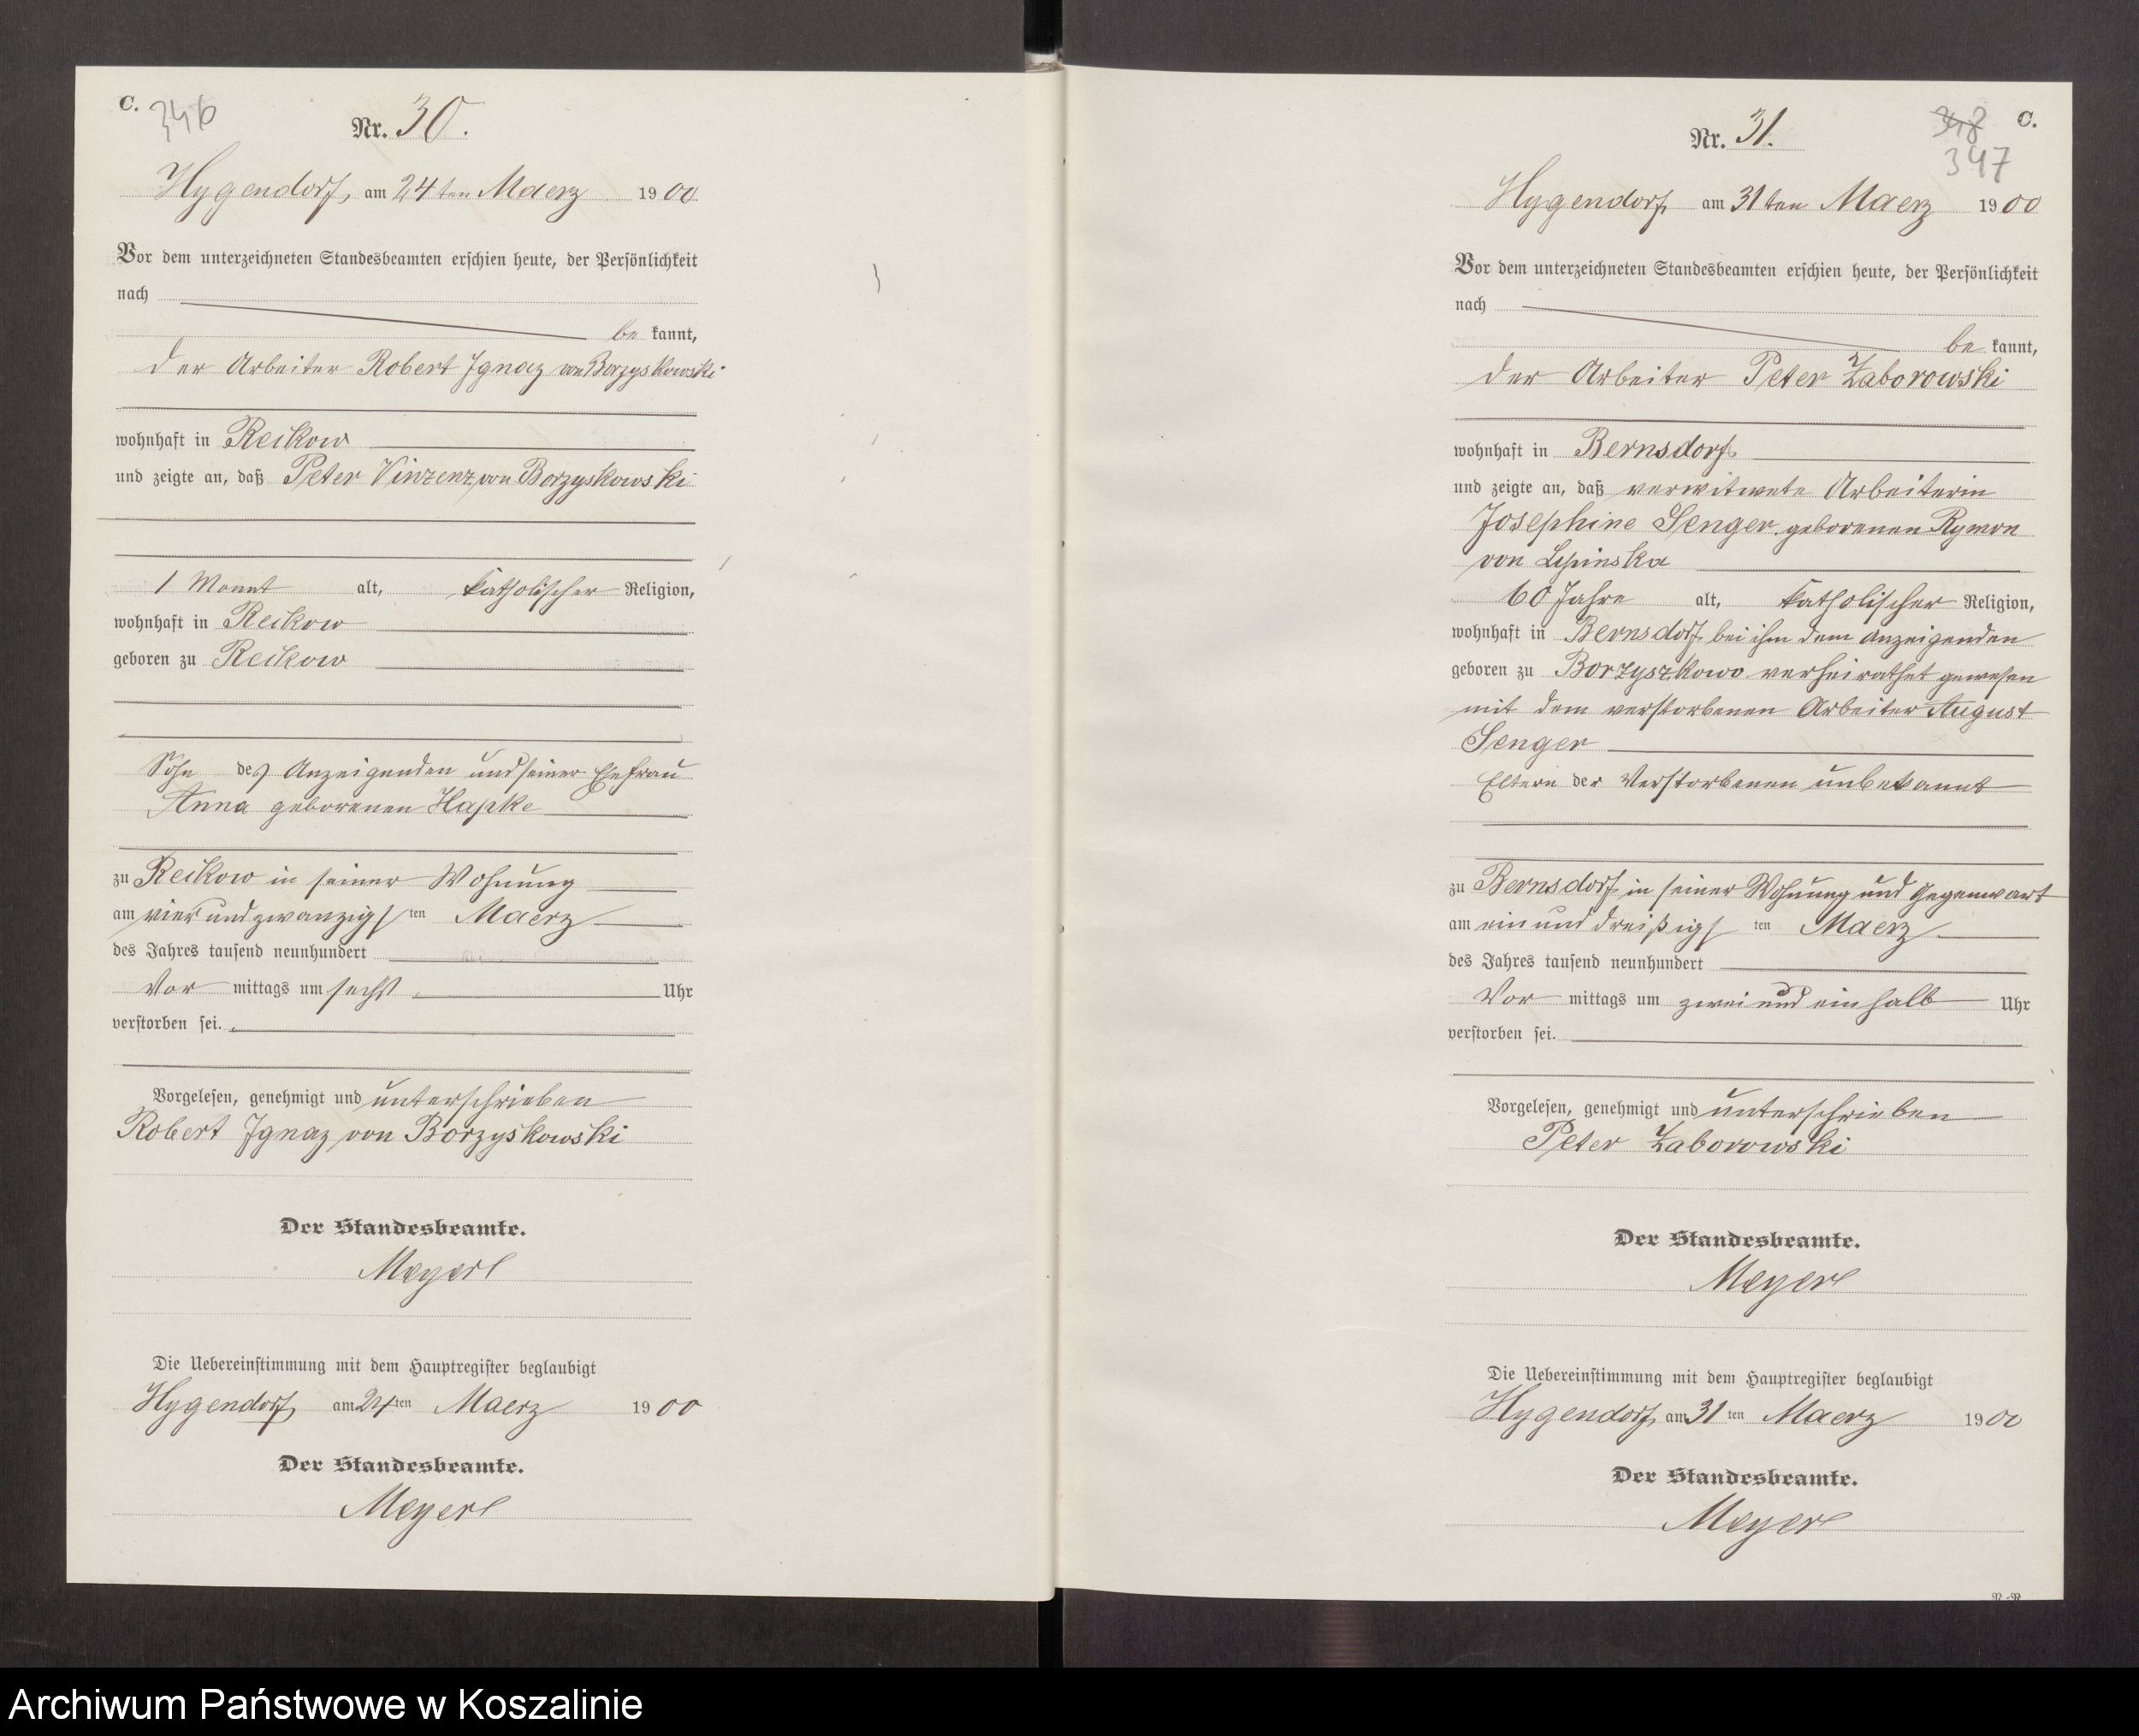 C.
346
Nr. 30.
Hygendorf, am 24ten Maerz 1900
Vor dem unterzeichneten Standesbeamten erschien heute, der Persönlichkeit
nach
be kannt,
der Arbeiter Robert Ignaz von Borzyskowski
wohnhaft in Reikow
und zeigte an, daß Peter Vinzenz von Borzyskowski
1 Monat alt, katholischer Religion,
wohnhaft in Reikow
geboren zu Reikow
Sohn des Anzeigenden und seiner Ehefrau
Anna geborenen Hapke
zu Reikow in seiner Wohnung
am vier und zwanzigsten Maerz
des Jahres tausend neunhundert
Vor mittags um sechs Uhr
verstorben sei.
Vorgelesen, genehmigt und unterschrieben
Robert Ignaz von Borzyskowski
Der Standesbeamte.
Meyerl
Die Uebereinstimmung mit dem Hauptregister beglaubigt
Hygendorf, am 24ten Maerz 1900
Der Standesbeamte.
Meyerl
C.
348
347
Nr. 31.
Hygendorf am 31ten Maerz 1900
Vor dem unterzeichneten Standesbeamten erschien heute, der Persönlichkeit
nach
be kannt,
der Arbeiter Peter Zaborowski
wohnhaft in Bernsdorf
und zeigte an, daß verwitwete Arbeiterin
Josephine Senger geborenen Rymon
von Lipinska
60 Jahre alt, katholischer Religion,
wohnhaft in Bernsdorf bei ihm dem Anzeigenden
geboren zu Borzyszkowo verheirathet gewesen
mit dem verstorbenen Arbeiter August
Senger
Eltern der Verstorbenen unbekannt
zu Bernsdorf in seiner Wohnung und Gegenwart
am ein und dreißigsten Maerz
des Jahres tausend neunhundert
Vor mittags um zwei und ein halb Uhr
verstorben sei.
Vorgelesen, genehmigt und unterschrieben
Peter Zaborowski
Der Standesbeamte.
Meyerl
Die Uebereinstimmung mit dem Hauptregister beglaubigt
Hygendorf, am 31ten Maerz 1900
Der Standesbeamte.
Meyerl
Archiwum Państwowe w Koszalinie